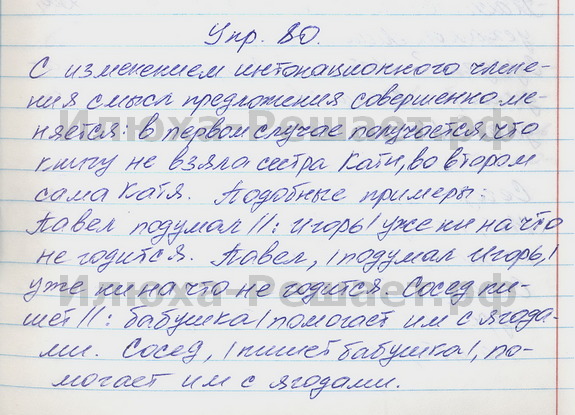 Упр. 80.
С изменением интонационного члене-
ния смысл предложения совершенно ме-
няется: в первом случае получается, что
книгу не взяла сестра Кати, во втором
сама Катя. Подобные примеры:
Павел подумал //: Игорь / уже ни на что
не годится. Павел, / подумал Игорь, /
уже ни на что не годится. Сосед пи-
шет //: бабушка / помогает им с ягода-
ми. Сосед, / пишет бабушка /, по-
могает им с ягодами.
Илюха-Решает.рф
Илюха-Решает.рф